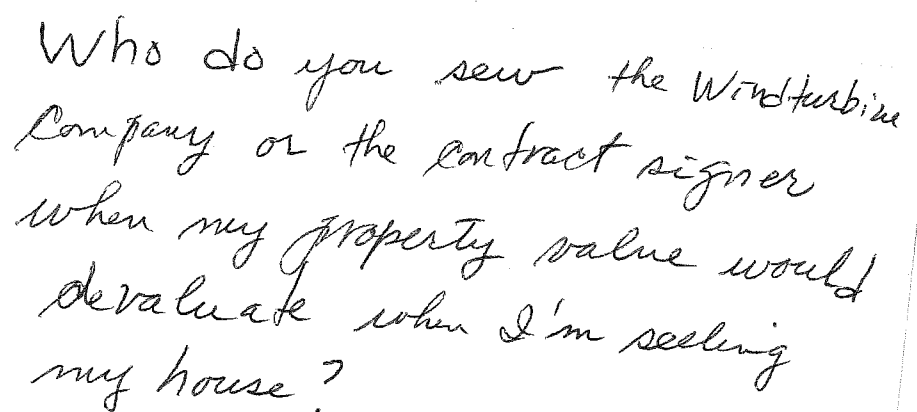 Who do you sew the Windturbine
Company or the contract signer
when my property value would
devaluate when I'm seeling
my house?